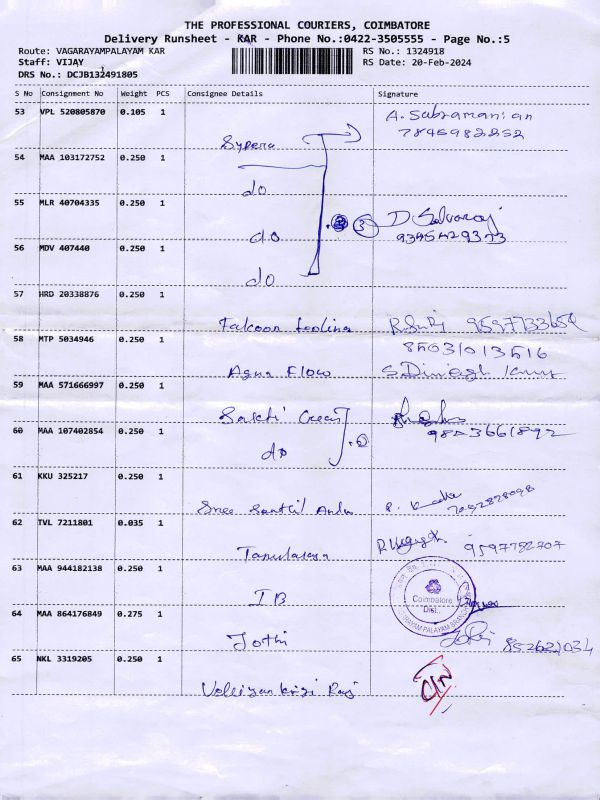 THE PROFESSIONAL COURIERS, COIMBATORE
Delivery Runsheet - KAR - Phone No.:0422-3505555 - Page No.:5
Route: VAGARAYAMPALAYAM KAR RS No.: 1324918
Staff: VIJAY RS Date: 20-Feb-2024
DRS No.: DCJB132491805
S No Consignment No Weight PCS Consignee Details Signature
53 VPL 520805870 0.105 1
A. Subramanian
7845982252
54 MAA 103172752 0.250 1
do
55 MLR 40704335 0.250 1
do
③ D Selvaraj
56 MDV 407440 0.250 1
do
57 HRD 20338876 0.250 1
Falcoon tooling
58 MTP 5034946 0.250 1
Aqua Flow
59 MAA 571666997 0.250 1
Sakthi Gears
60 MAA 107402854 0.250 1
do
61 KKU 325217 0.250 1
Sree Santhil
62 TVL 7211801 0.035 1
9597782707
63 MAA 944182138 0.250 1
IB
Coimbatore
Dist.
64 MAA 864176849 0.275 1
Jothi
65 NKL 3319205 0.250 1
Raj
C/N